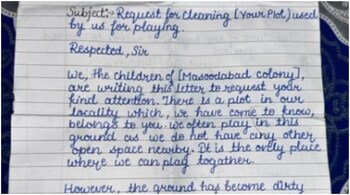 Subject:- Request for cleaning [Your Plot] used
by us for playing.
Respected, Sir
We, the children of [Masoodabad colony],
are writing this letter to request your
kind attention. There is a plot in our
locality which, we have come to know,
belongs to you. We often play in this
ground as we do not have any other
open space nearby. It is the only place
where we can play together.
However, the ground has become dirty